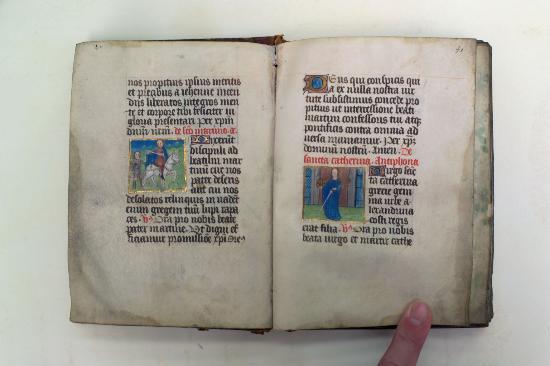 nos propitius ipsius meritis
et precibus a iehenne incen
diis liberatos integros men
te et corpore tibi feliciter in
gloria presentari. Per xpm
dnum nrm. de sco martino. a.
Dixerunt
discipuli ad
beatum mar
tinum cur nos
pater deseris
aut cui nos
desolatos relinquis invadet
enim gregem tuum lupi rapa
ces. V. Ora pro nobis beate
pater martine. Ut digni ef
ficiamur promissione xpi. Ore
Deus qui conspicis qui
a ex nulla nostra vir
tute subsistimus concede pro
pitius ut intercessione beati
martini confessoris tui atqz
pontificis contra omnia ad
versa muniamur. Per xpm
dominum nostrum. Amen. De
sancta catherina. Antiphona
Virgo sanc
ta catherina
grecie gem
ma urbe a
lexandrina
costi regis
erat filia. V. Ora pro nobis
beata virgo et martir cathe